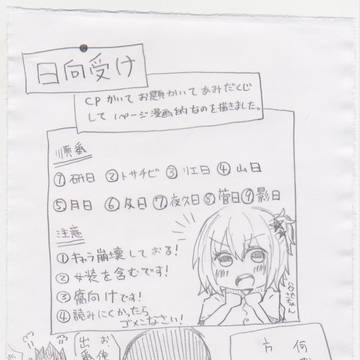 日向受け
CPかいてお題かいてあみだくじ
して1ページ漫画的なのを描きました。
順番
①研日 ②トサチビ ③リエ日 ④山日
⑤月日 ⑥及日 ⑦夜久日 ⑧菅日 ⑨影日
注意
①キャラ崩壊しておる!
②女装を含むです!
③腐向けです!
④読みにくかったら
ゴメンなさい!